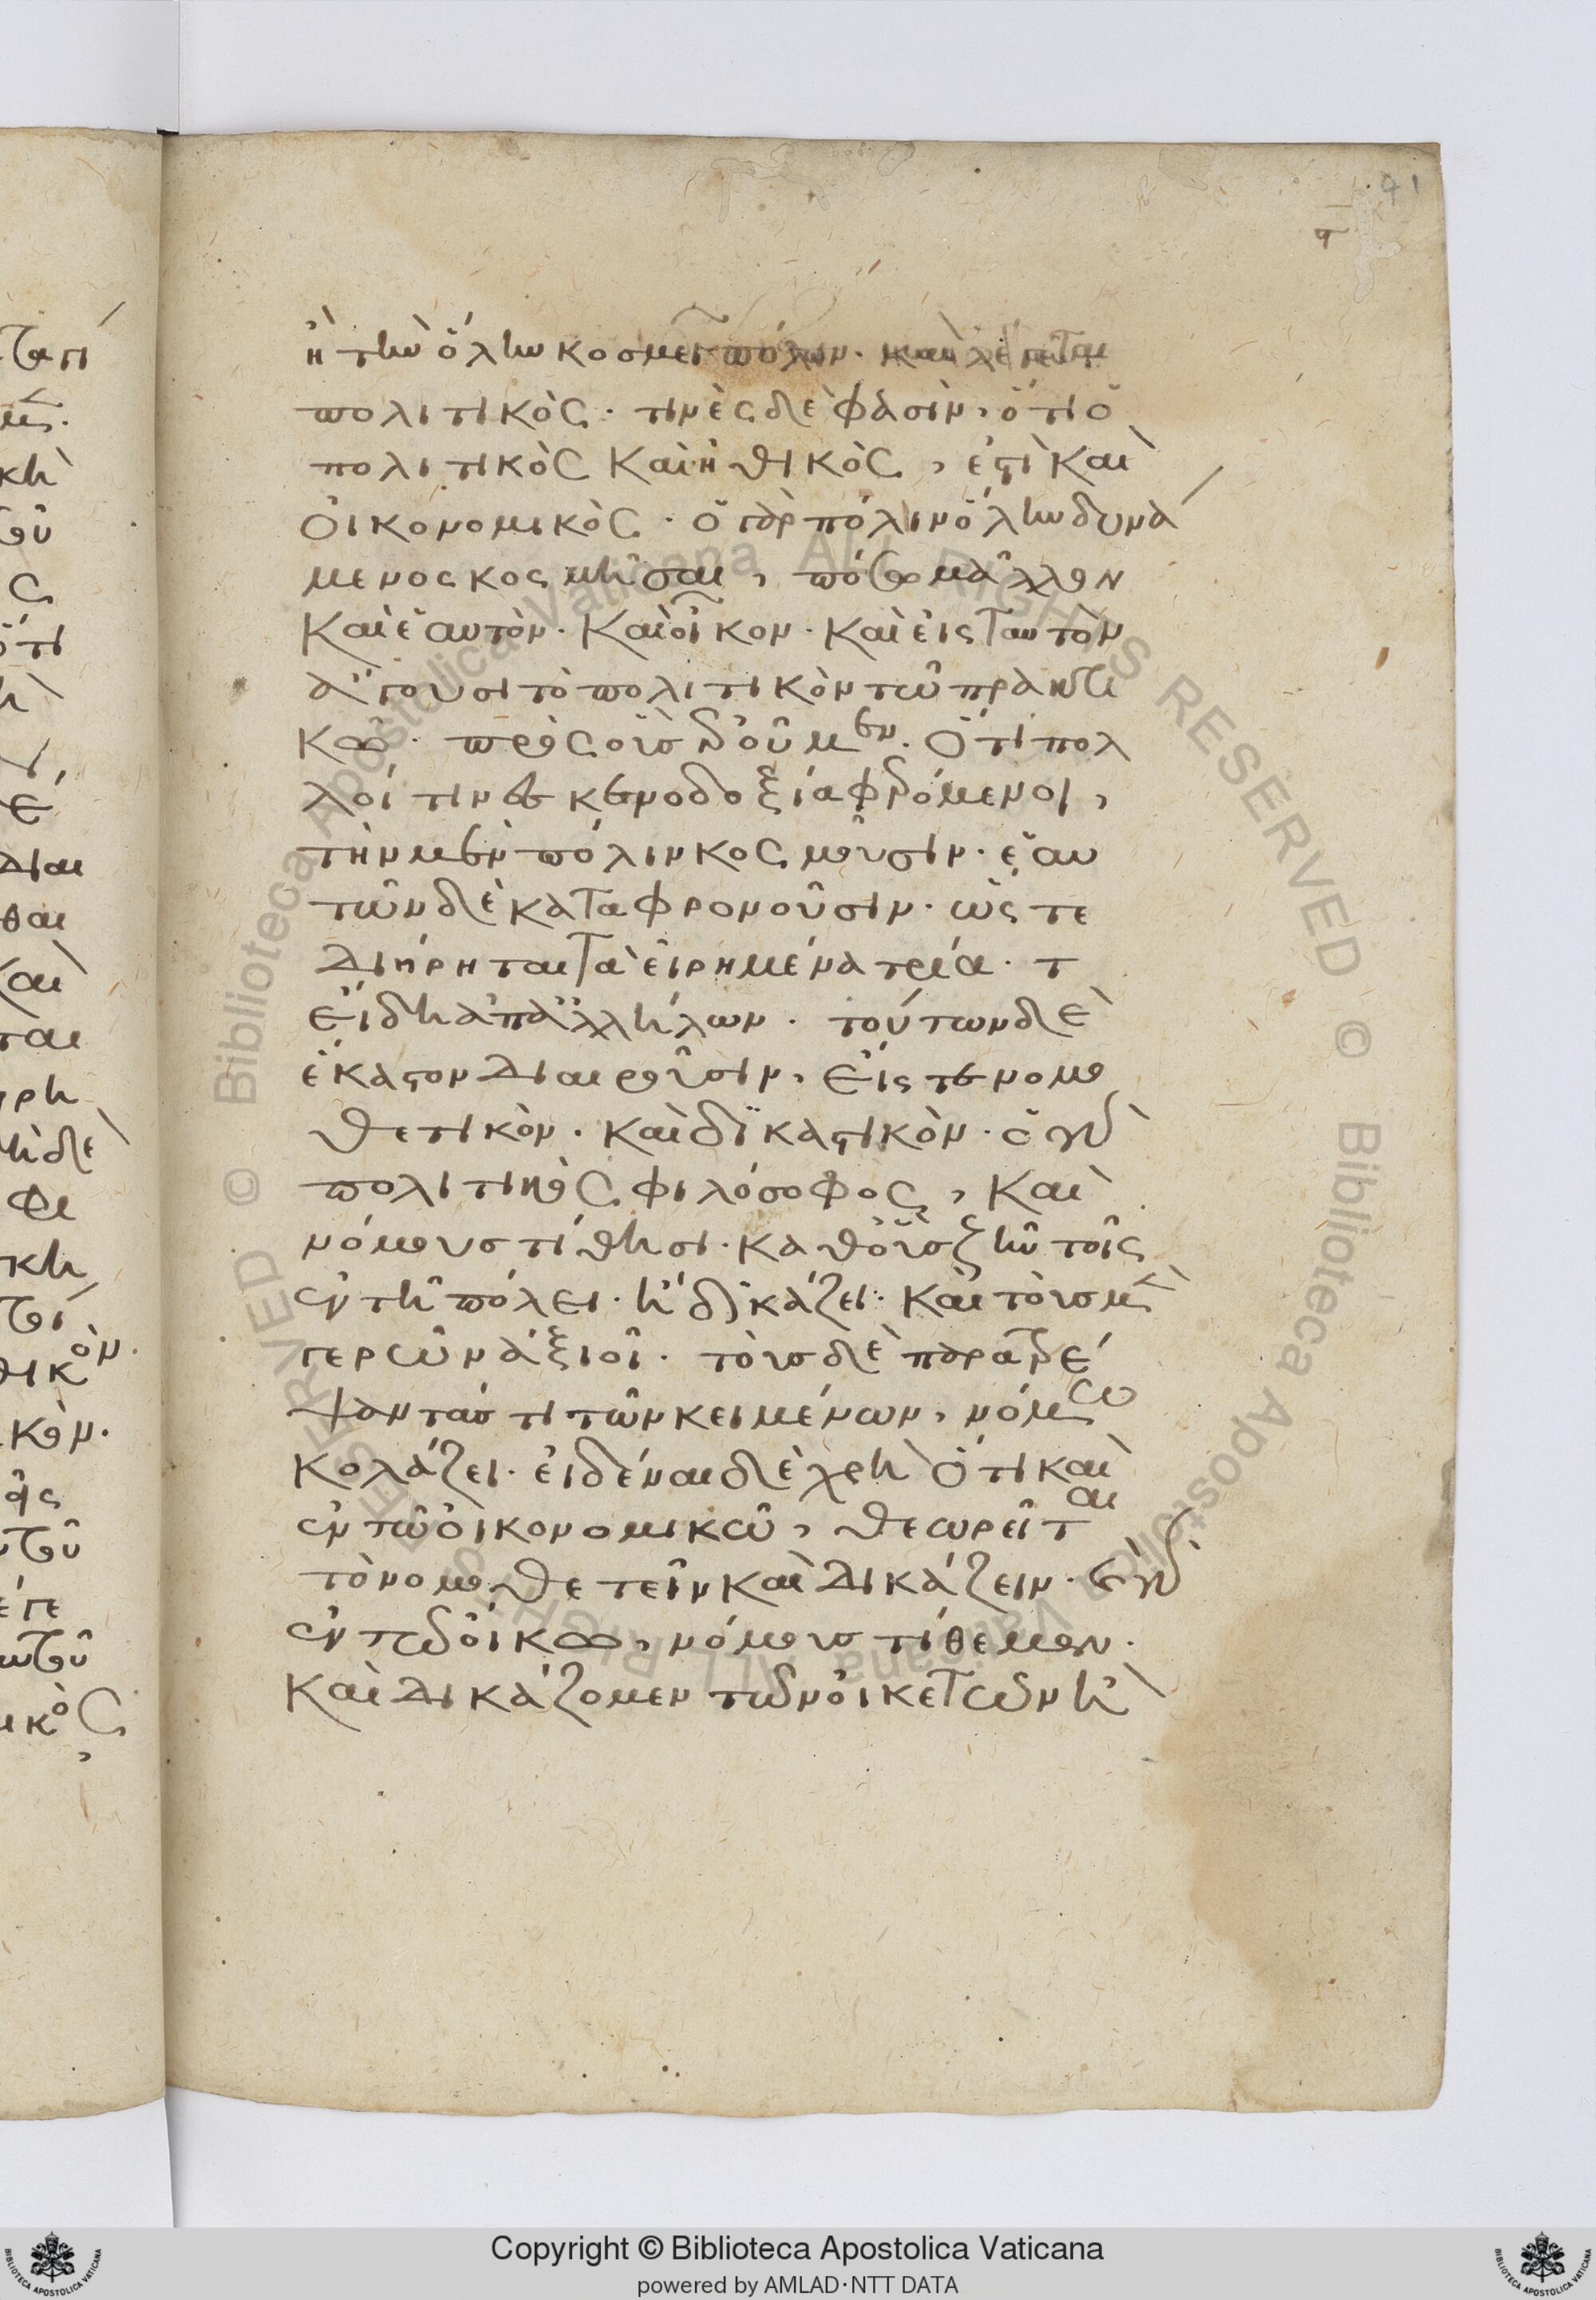 41
ἢ τὴν ὅλην κοσμεῖ πόλιν· καὶ λέγεται
πολιτικὸς· τινὲς δέ φασὶν, ὅτι ὁ
πολιτικὸς καὶ ἠθικὸς, ἐστὶ καὶ
οἰκονομικὸς· ὁ γὰρ πόλιν ὅλην δυνά
μενος κοσμῆσαι, πόσω μᾶλλον
καὶ ἑαυτὸν· καὶ οἶκον· καὶ εἰς ταυτὸν
ἄγουσι τὸ πολιτικὸν τῶ πρακτι
κῶ· πρὸς οὓς ἐροῦμεν· ὅτι πολ
λοί τινες κενοδοξία φερόμενοι,
τὴν μὲν πόλιν κοσμοῦσιν· ἑαυ
τῶν δὲ καταφρονοῦσιν· ὥς τε
διήρηται τὰ εἰρημένα τρία· τ
εἴδη ἀπ' ἀλλήλων· τούτων δὲ
ἕκαστον διαιροῦσιν, εἴς τε νομο
θετικὸν· καὶ δικαστικὸν· ὁ γὰρ
πολιτικὸς φιλόσοφος, καὶ
νόμους τίθησι· καθ' οὓς ζῆν τοῖς
ἐν τῆ πόλει· ἢ δικάζει· καὶ τοὺς μὲν
γερῶν ἀξιοῖ· τοὺς δὲ παρατρέ
ψαντάς τι τῶν κειμένων, νόμω
κολάζει· εἰδέναι δὲ χρὴ ὅτι καὶ
ἐν τῶ οἰκονομικῶ, θεωρεῖται
τὸ νομοθετεῖν καὶ δικάζειν· καὶ γὰρ
ἐν τῶ οἴκω, νόμους τίθεμεν·
καὶ δικάζομεν τῶν οἰκετῶν ἢ
Copyright © Biblioteca Apostolica Vaticana
powered by AMLAD·NTT DATA